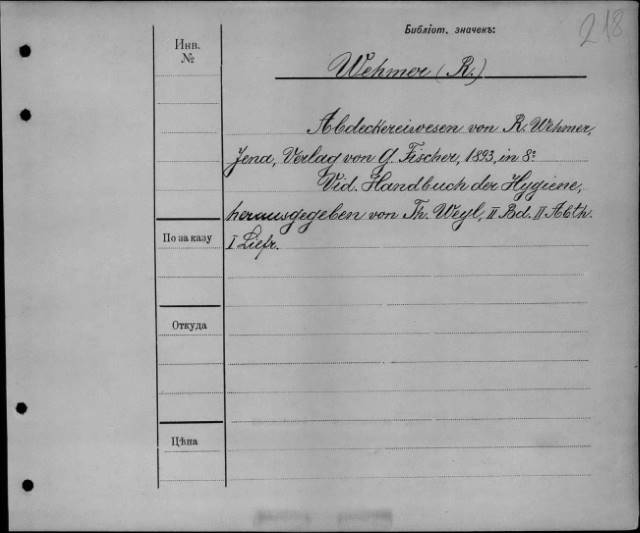 218
Библіот. значекъ:
Инв.
№
Wehmer (R.)
Abdeckereiwesen von R. Wehmer,
Jena, Verlag von G. Fischer, 1893, in 8º
Vid. Handbuch der Hygiene,
herausgegeben von Th. Weyl, II Bd. II Abth.
I Liefr.
По заказу
Откуда
Цѣна